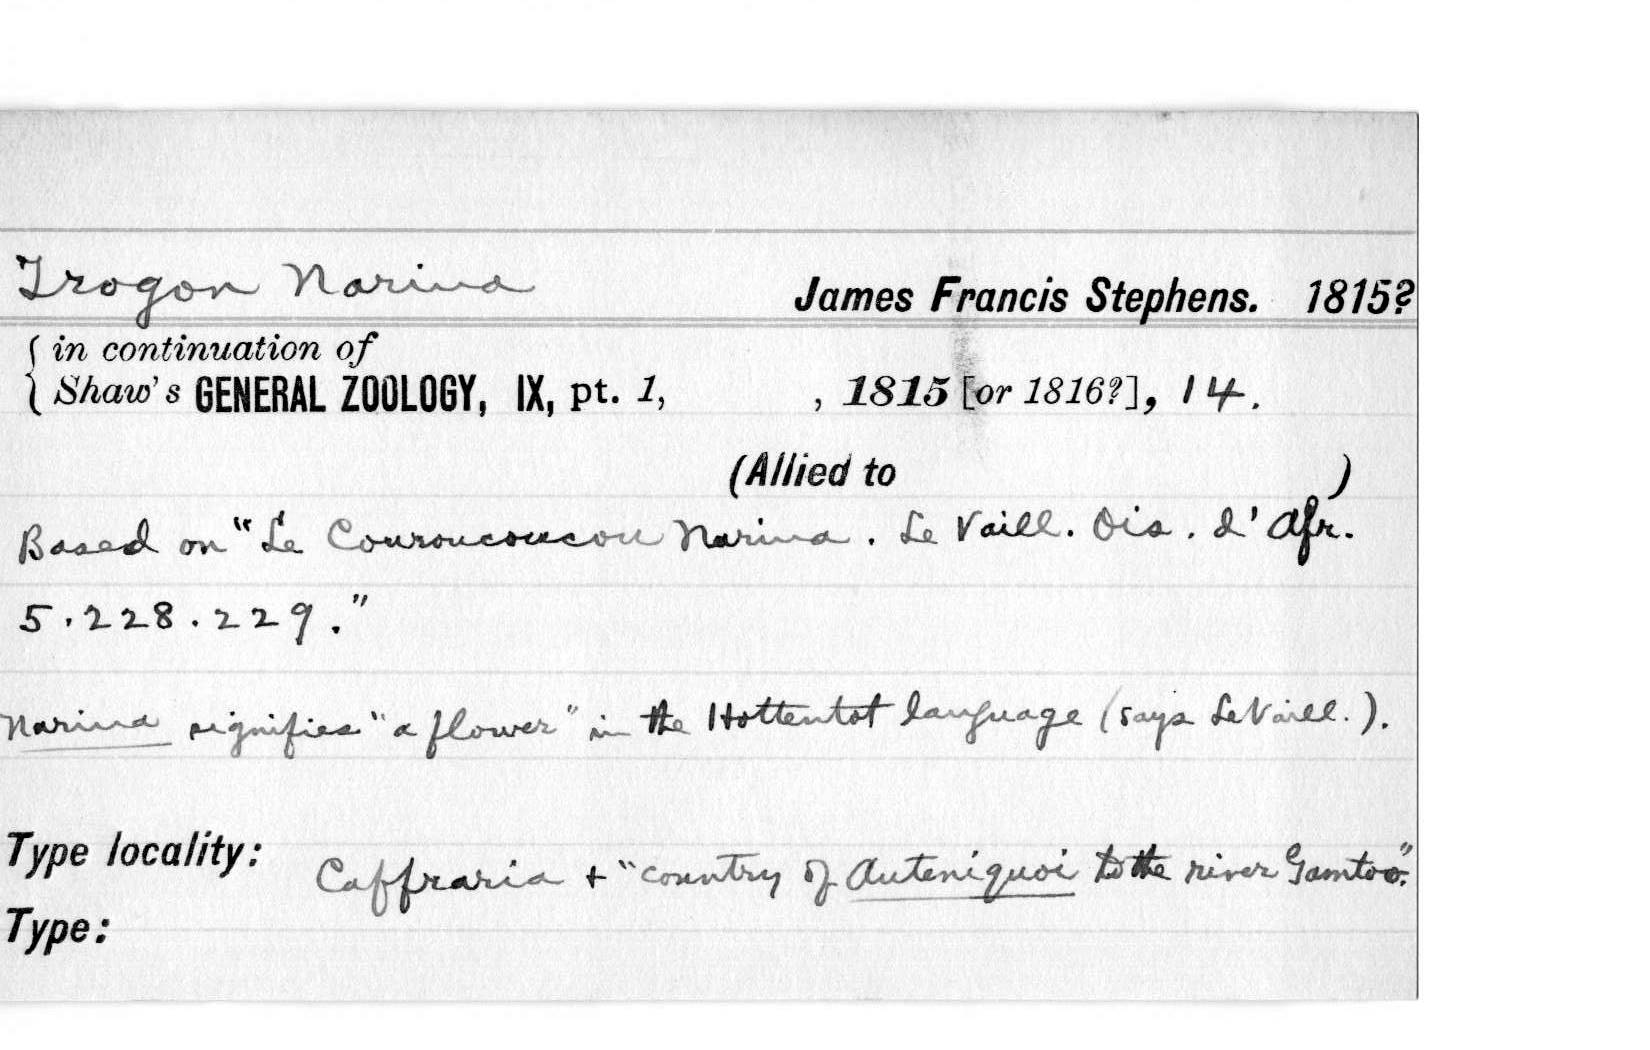 Trogon Narina James Francis Stephens. 1815?
{ in continuation of
{ Shaw's GENERAL ZOOLOGY, IX, pt. 1, , 1815 [or 1816?], 14.
(Allied to )
Based on "Le Couroucoucou Narina. Le Vaill. Ois. d'Afr.
5.228.229."
Narina signifies "a flower" in the Hottentot language (says LeVaill.).
Type locality: Caffraria + "country of Auteniquoi to the river Gamtoo".
Type: